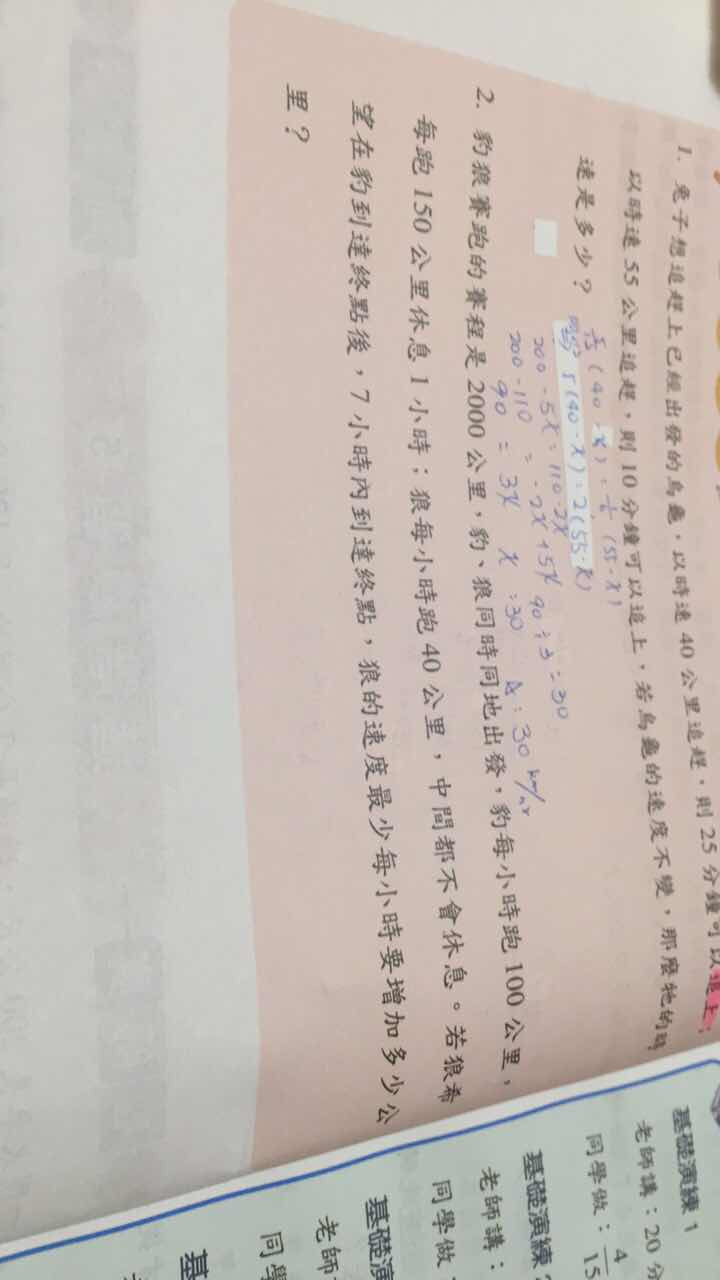 1. 兔子想追趕上已經出發的烏龜，以時速 40 公里追趕，則 25 分鐘可以追上；
以時速 55 公里追趕，則 10 分鐘可以追上，若烏龜的速度不變，那麼牠的時
速是多少？
5(40-x)=2(55-x)
200-5x=110-2x 90÷3=30
200-110=-2x+5x
90=3x x=30 A:30 km/hr
2. 豹狼賽跑的賽程是 2000 公里，豹、狼同時同地出發，豹每小時跑 100 公里，
每跑 150 公里休息 1 小時；狼每小時跑 40 公里，中間都不會休息。若狼希
望在豹到達終點後，7 小時內到達終點，狼的速度最少每小時要增加多少公
里？
基礎演練 1
老師講：20 分
同學做：4/15
基礎演練
老師講：
同學做：
基礎演
老師
同學
基